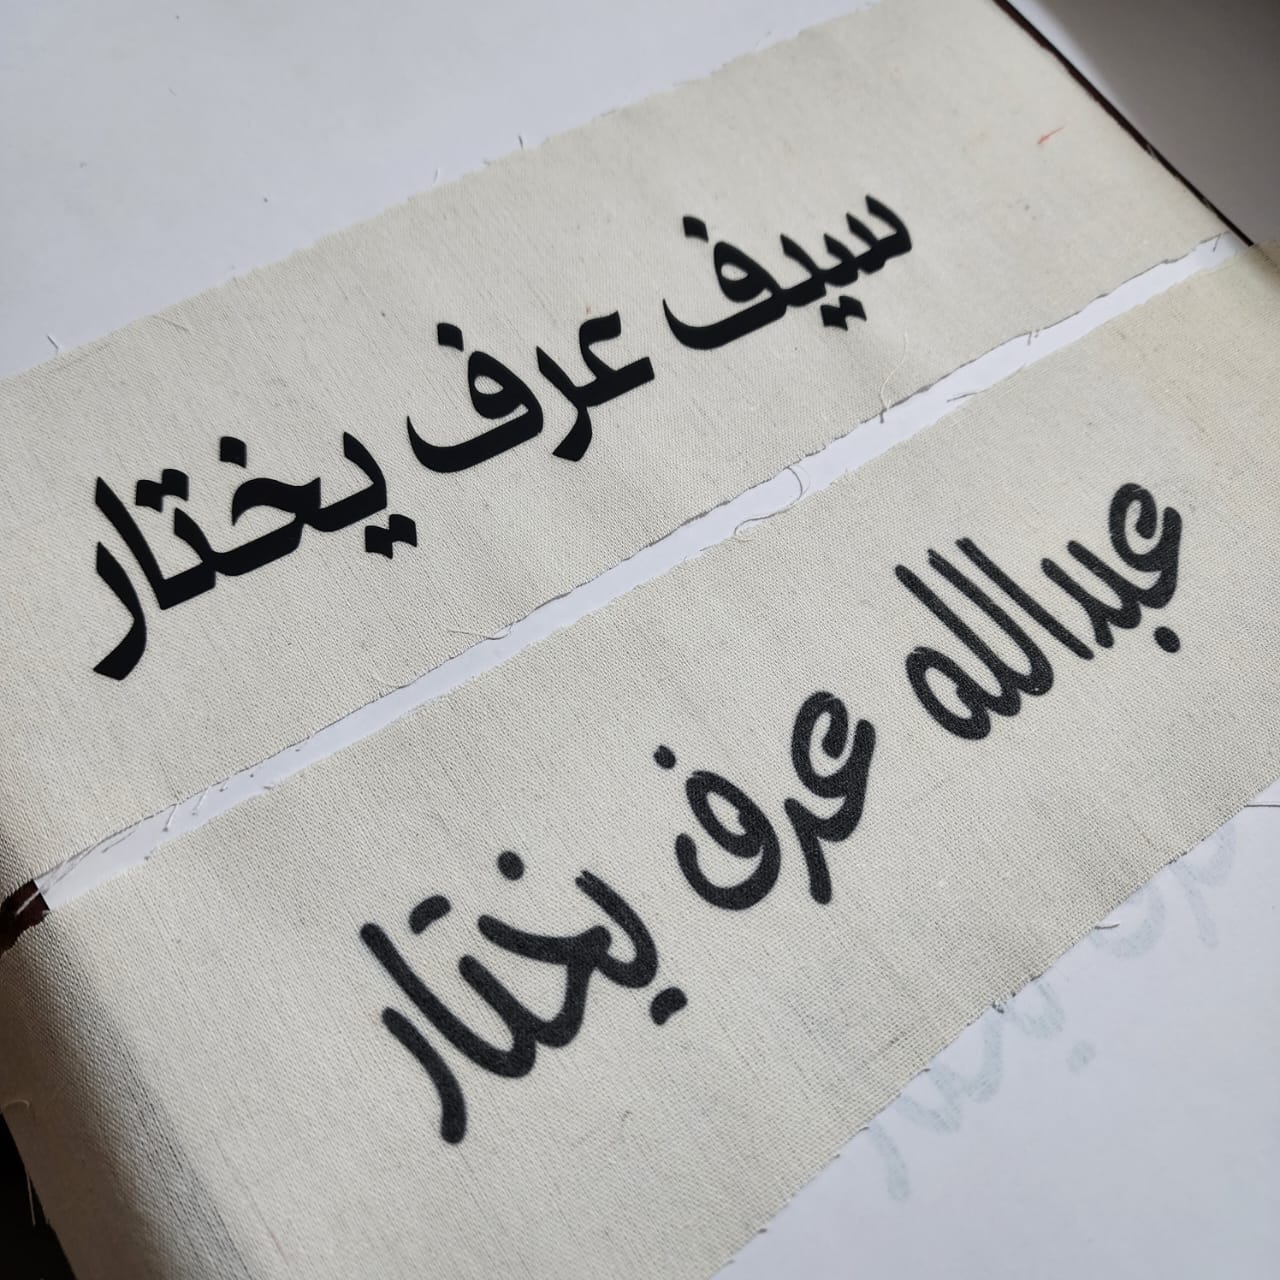 سيف عرف يختار
عبدالله عرف يختار